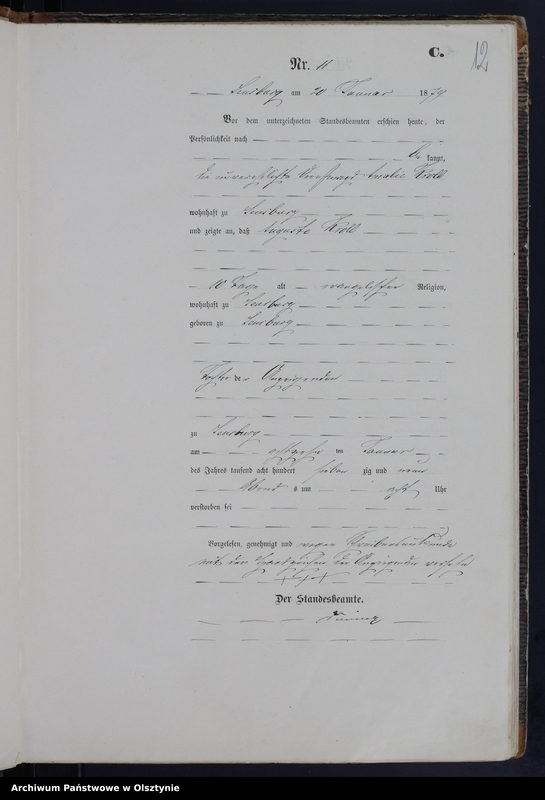 C.
12
Nr. 11
Sensburg am 20 Januar 1879
Vor dem unterzeichneten Standesbeamten erschien heute, der
Persönlichkeit nach
be kannt,
die unverehelichte Amalie Kroll
wohnhaft zu Sensburg
und zeigte an, daß Auguste Kroll
10 Tage alt evangelischer Religion,
wohnhaft zu Sensburg
geboren zu Sensburg
Tochter der Anzeigenden
zu Sensburg
am ten Januar
des Jahres tausend acht hundert sieben zig und neun
Abend s um acht Uhr
verstorben sei
Vorgelesen, genehmigt und wegen Schreibensunkunde
mit den Handzeichen der Anzeigenden versehen
+++
Der Standesbeamte.
Archiwum Państwowe w Olsztynie